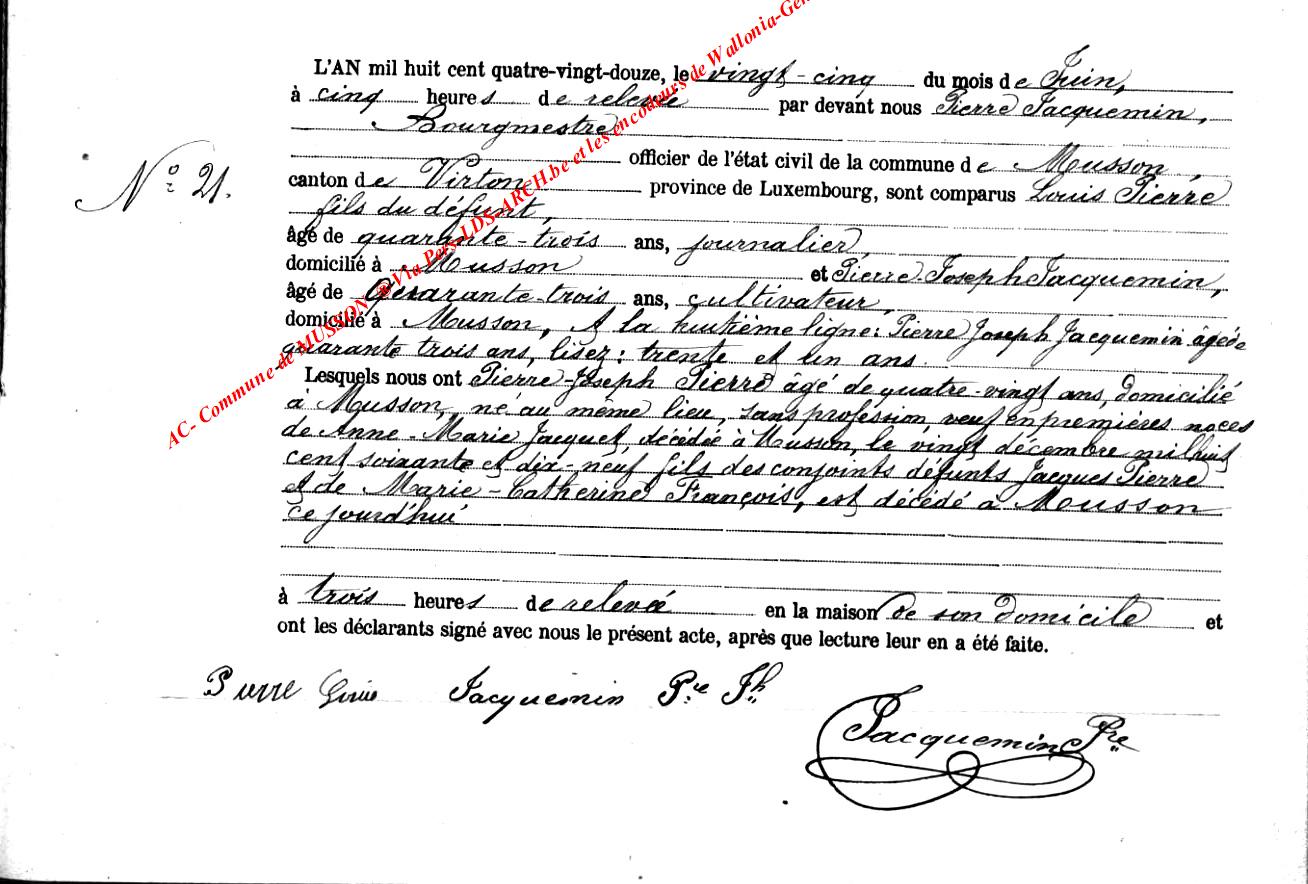 L'AN mil huit cent quatre-vingt-douze, le vingt-cinq du mois de Juin,
à cinq heures de relevée par devant nous Pierre Jacquemin,
Bourgmestre
officier de l'état civil de la commune de Musson
N° 21.
canton de Virton province de Luxembourg, sont comparus Louis Pierre
fils du défunt,
âgé de quarante-trois ans, journalier,
domicilié à Musson et Pierre-Joseph Jacquemin,
âgé de Quarante-trois ans, cultivateur,
domicilié à Musson, A la huitième ligne: Pierre Joseph Jacquemin âgé de
quarante trois ans, lisez: trente et un ans.
Lesquels nous ont Pierre-Joseph Pierre âgé de quatre-vingt ans, domicilié
à Musson, né au même lieu, sans profession, veuf en premières noces
de Anne-Marie Jacquet, décédée à Musson, le vingt décembre mil huit
cent soixante et dix-neuf fils des conjoints défunts Jacques Pierre
et de Marie-Catherine François, est décédé à Musson
ce jourd'hui
à trois heures de relevée en la maison de son domicile et
ont les déclarants signé avec nous le présent acte, après que lecture leur en a été faite.
Pierre Louis Jacquemin Pre Jh
Jacquemin Pre
AC- Commune de MUSSON @ Via Pers-LDS-ARCH.be et les encodeurs de Wallonia-Gen